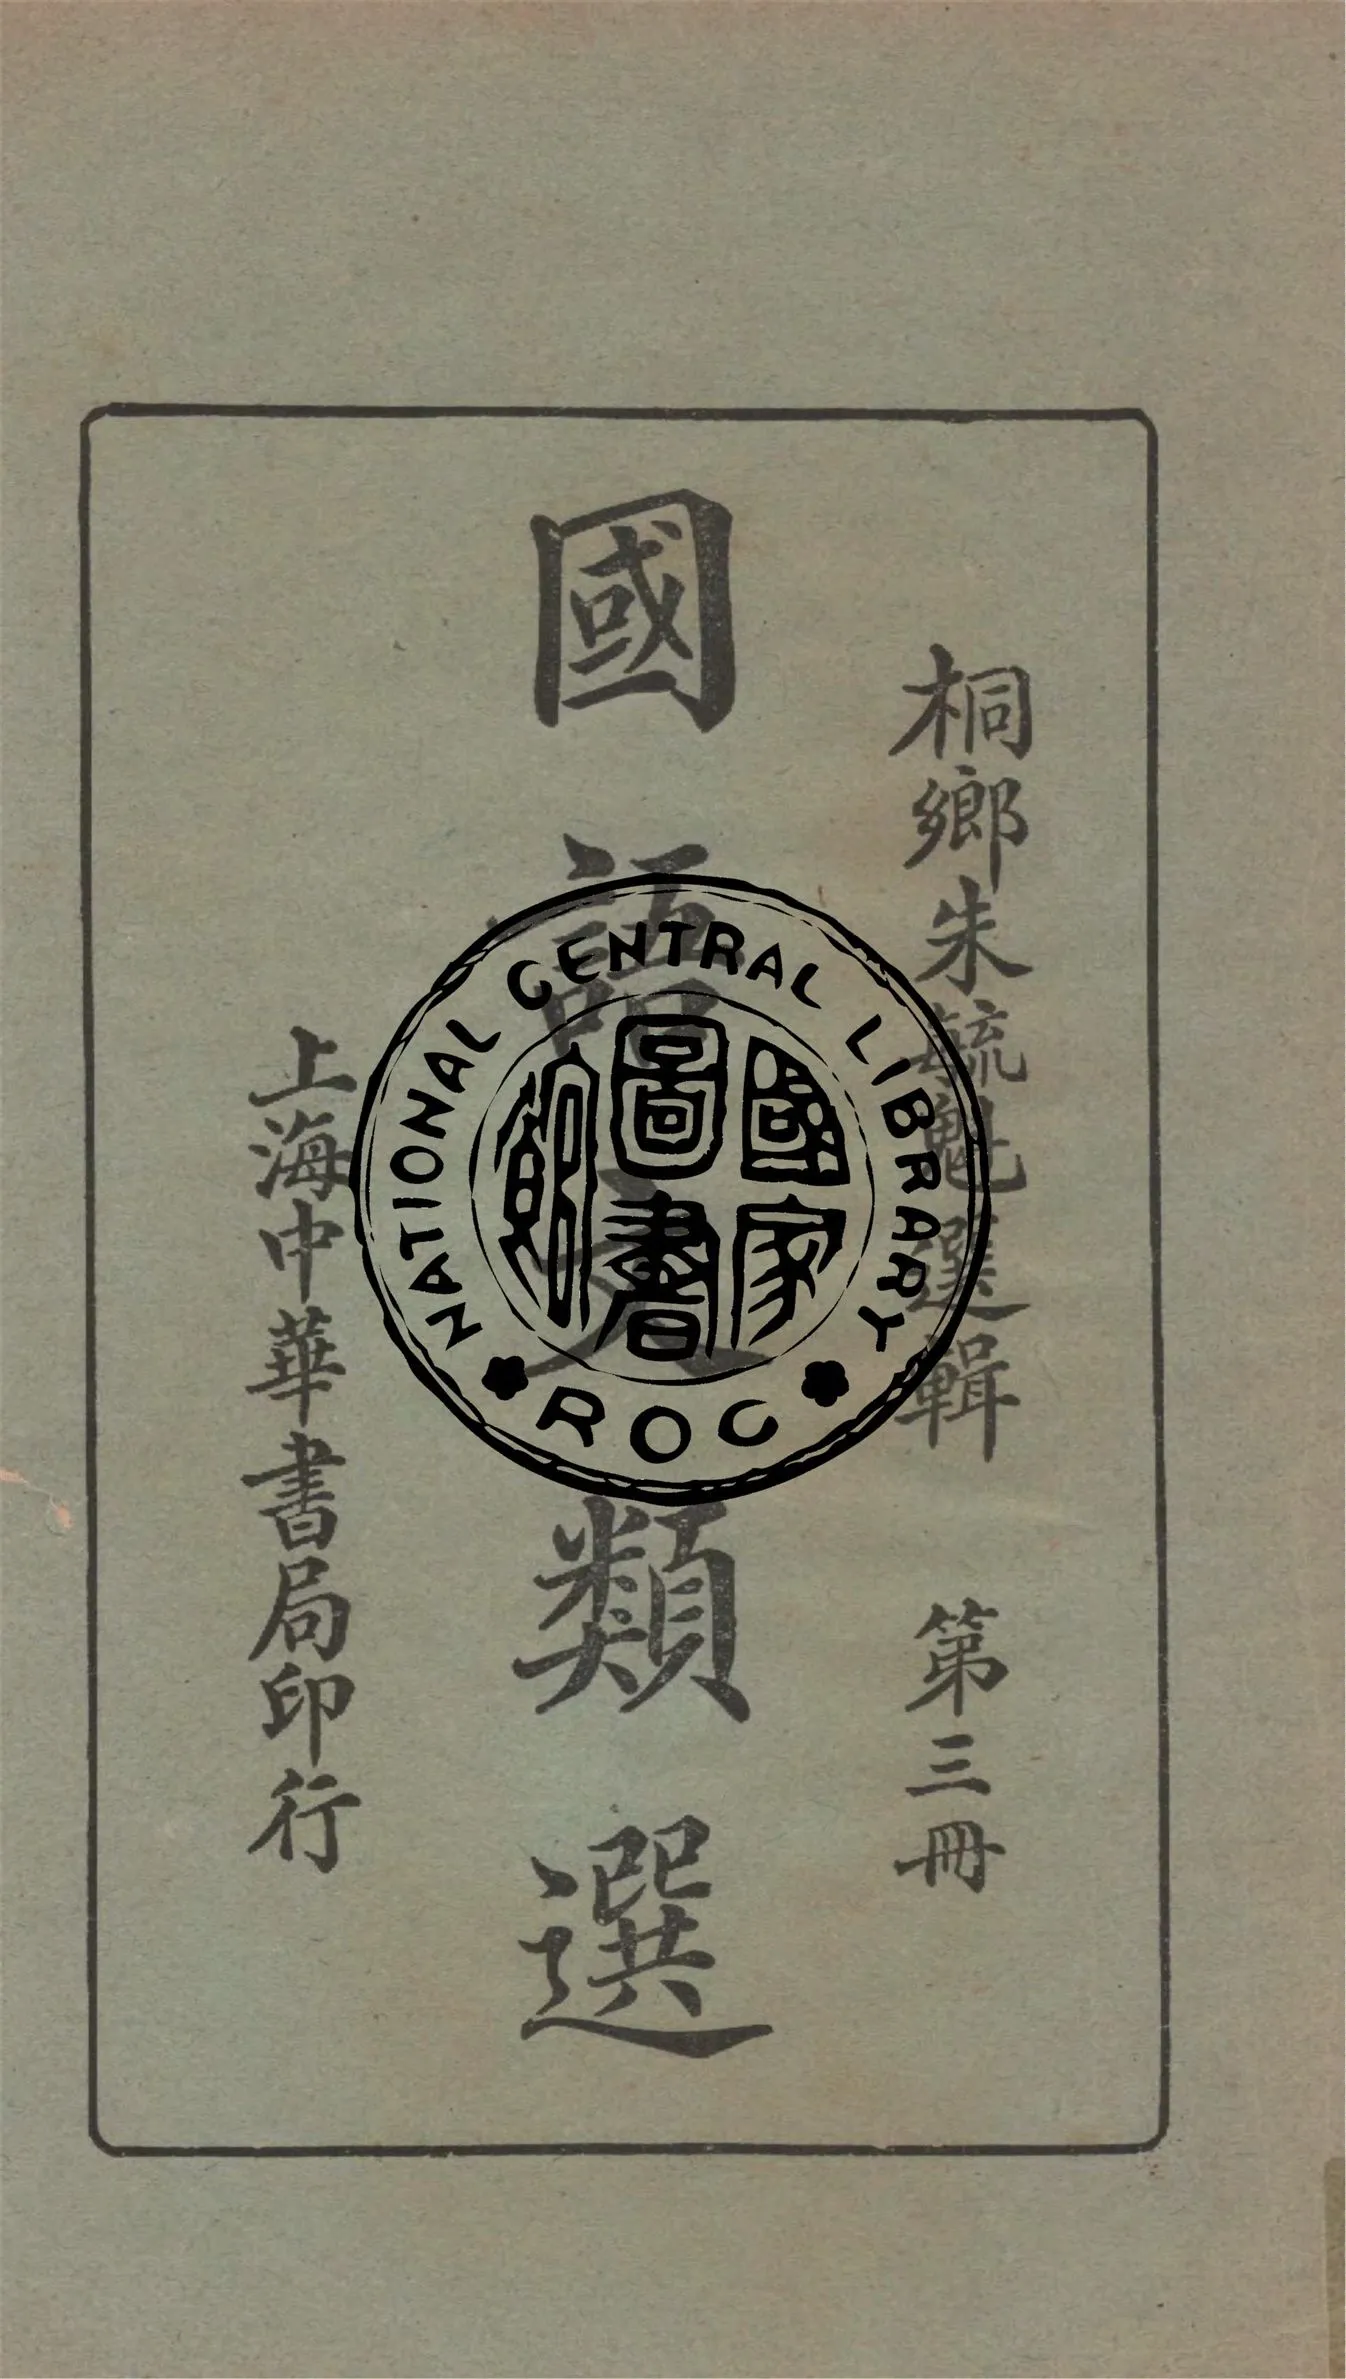 桐鄉朱毓魁選輯 第三冊
國語文類選
上海中華書局印行
NATIONAL CENTRAL LIBRARY
國家圖書館
ROC